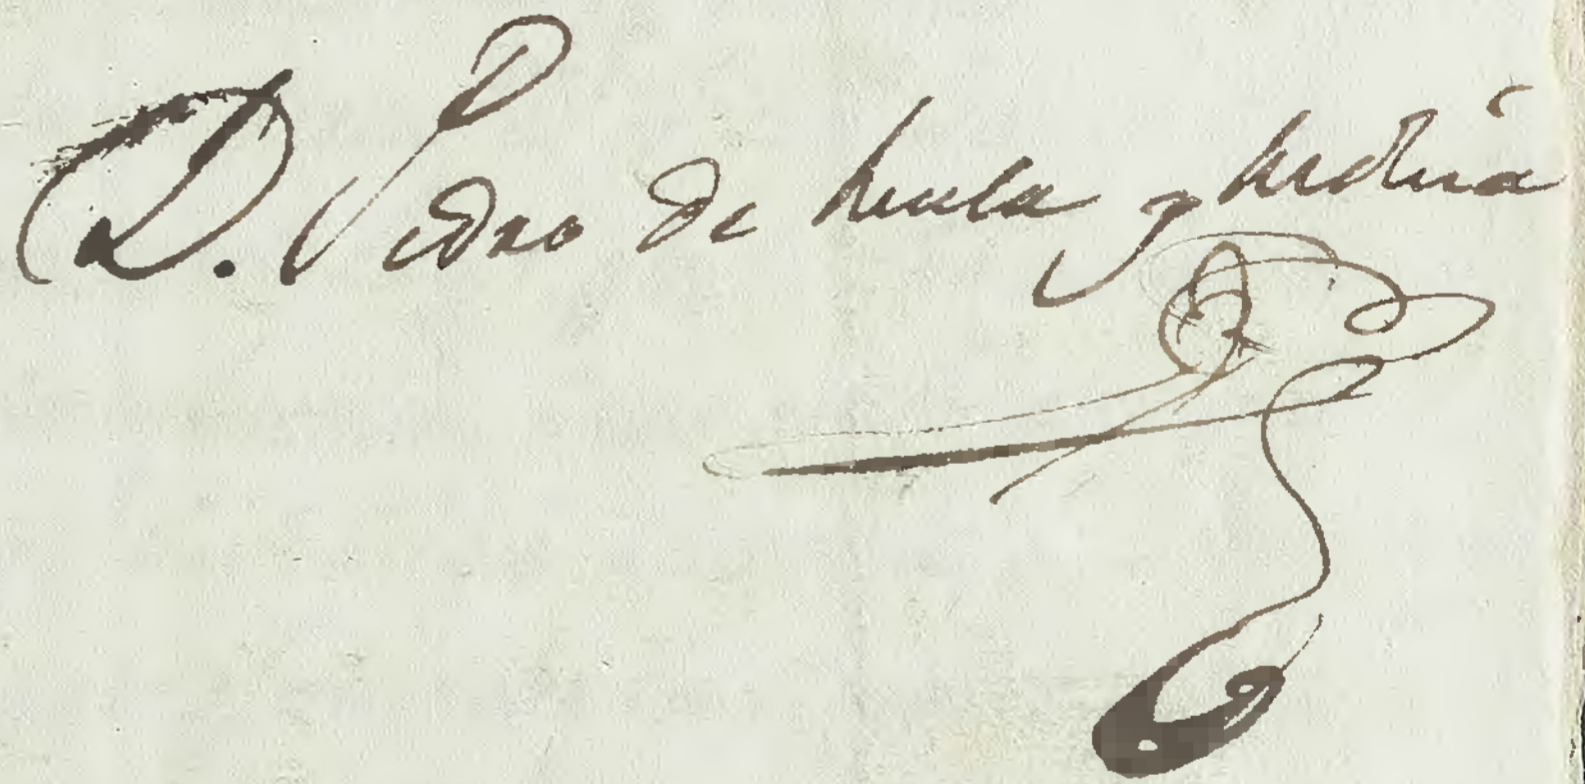 D. Pedro de Mula y Medina